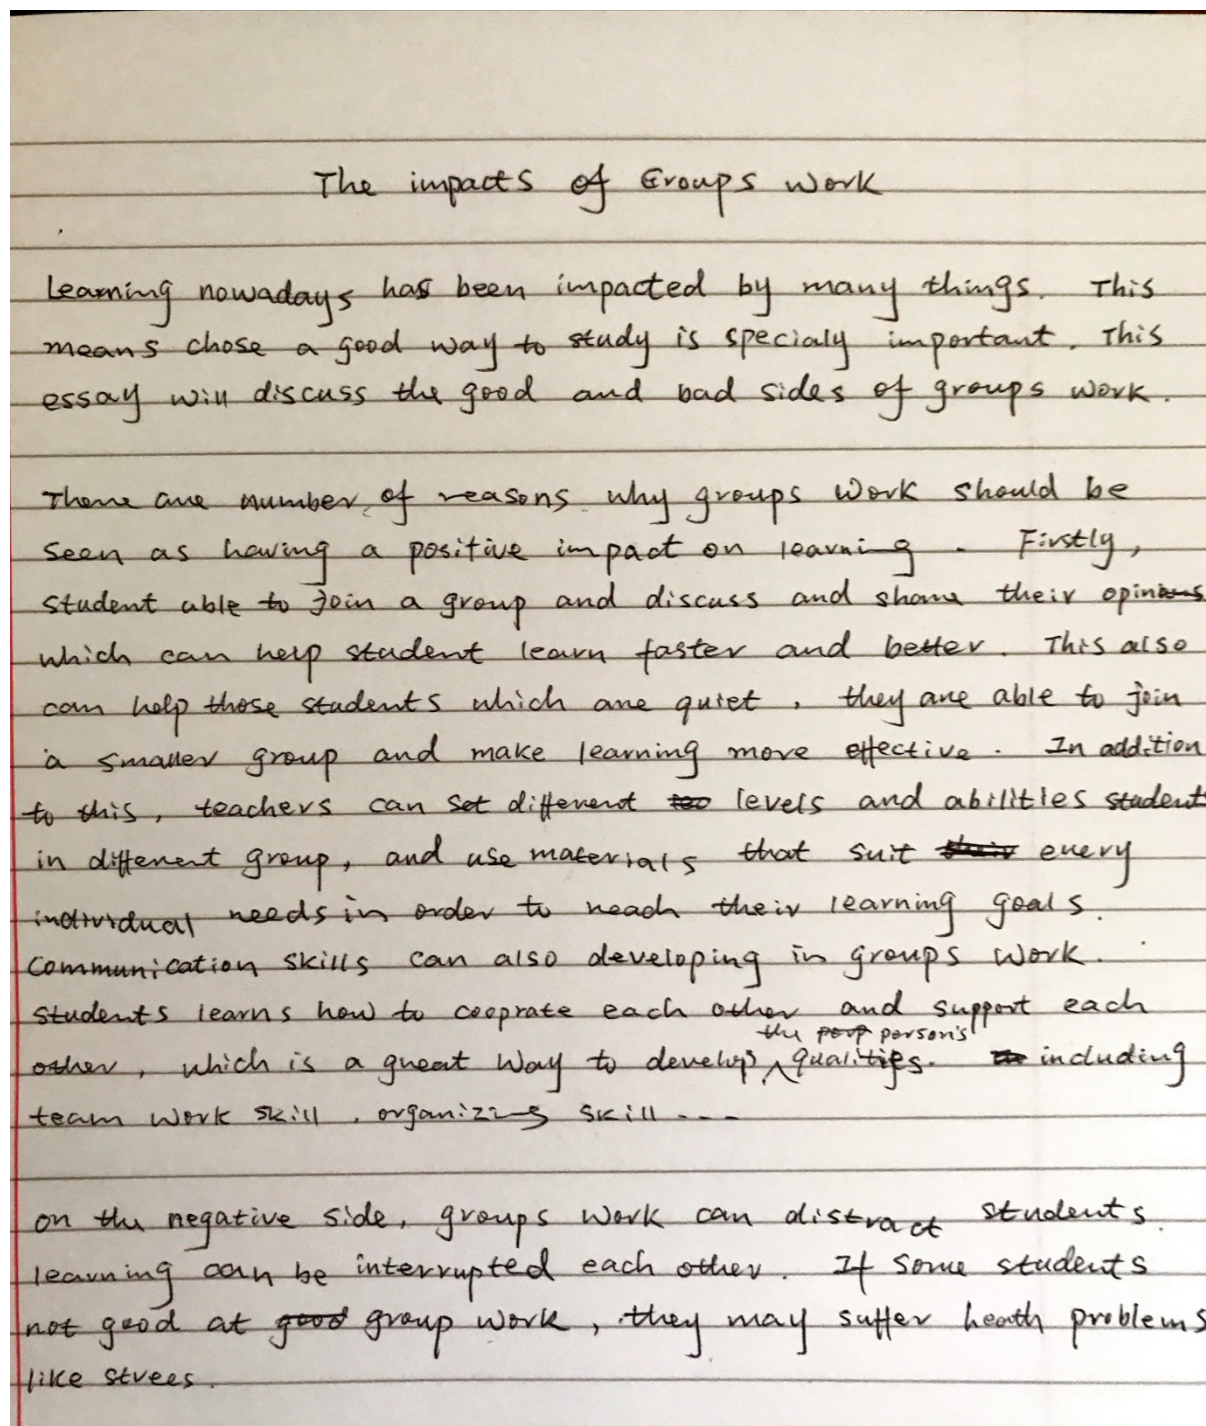 The impacts of Groups work
Learning nowadays has been impacted by many things. This
means chose a good way to study is specialy important. This
essay will discuss the good and bad sides of groups work.
There are number of reasons why groups work should be
seen as having a positive impact on learning. Firstly,
student able to join a group and discuss and share their opinions
which can help student learn faster and better. This also
can help those students which are quiet, they are able to join
a smaller group and make learning more effective. In addition
to this, teachers can set different levels and abilities student
in different group, and use materials that suit every
individual needs in order to reach their learning goals.
Communication skills can also developing in groups work.
Students learns how to cooprate each other and support each
the person's
other, which is a great way to develop qualities. including
team work skill, organizing skill ...
on the negative side, groups work can distract students.
learning can be interrupted each other. If some students
not good at group work, they may suffer heath problems
like strees.